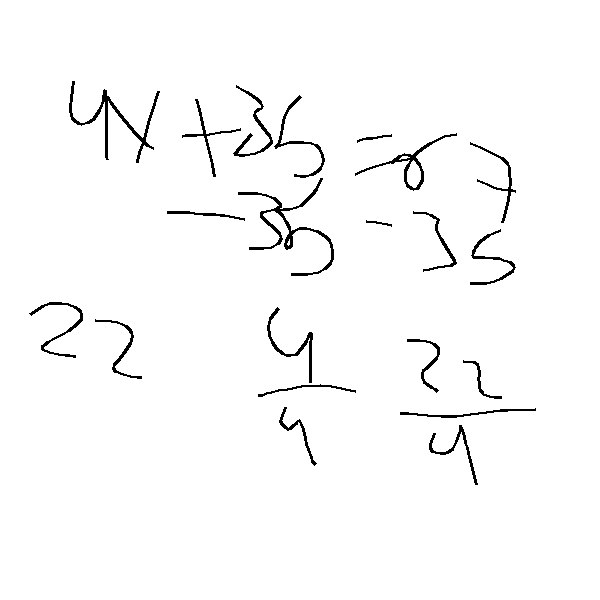 4x + 35 = 87
- 35 - 35
22 4/4 22/4